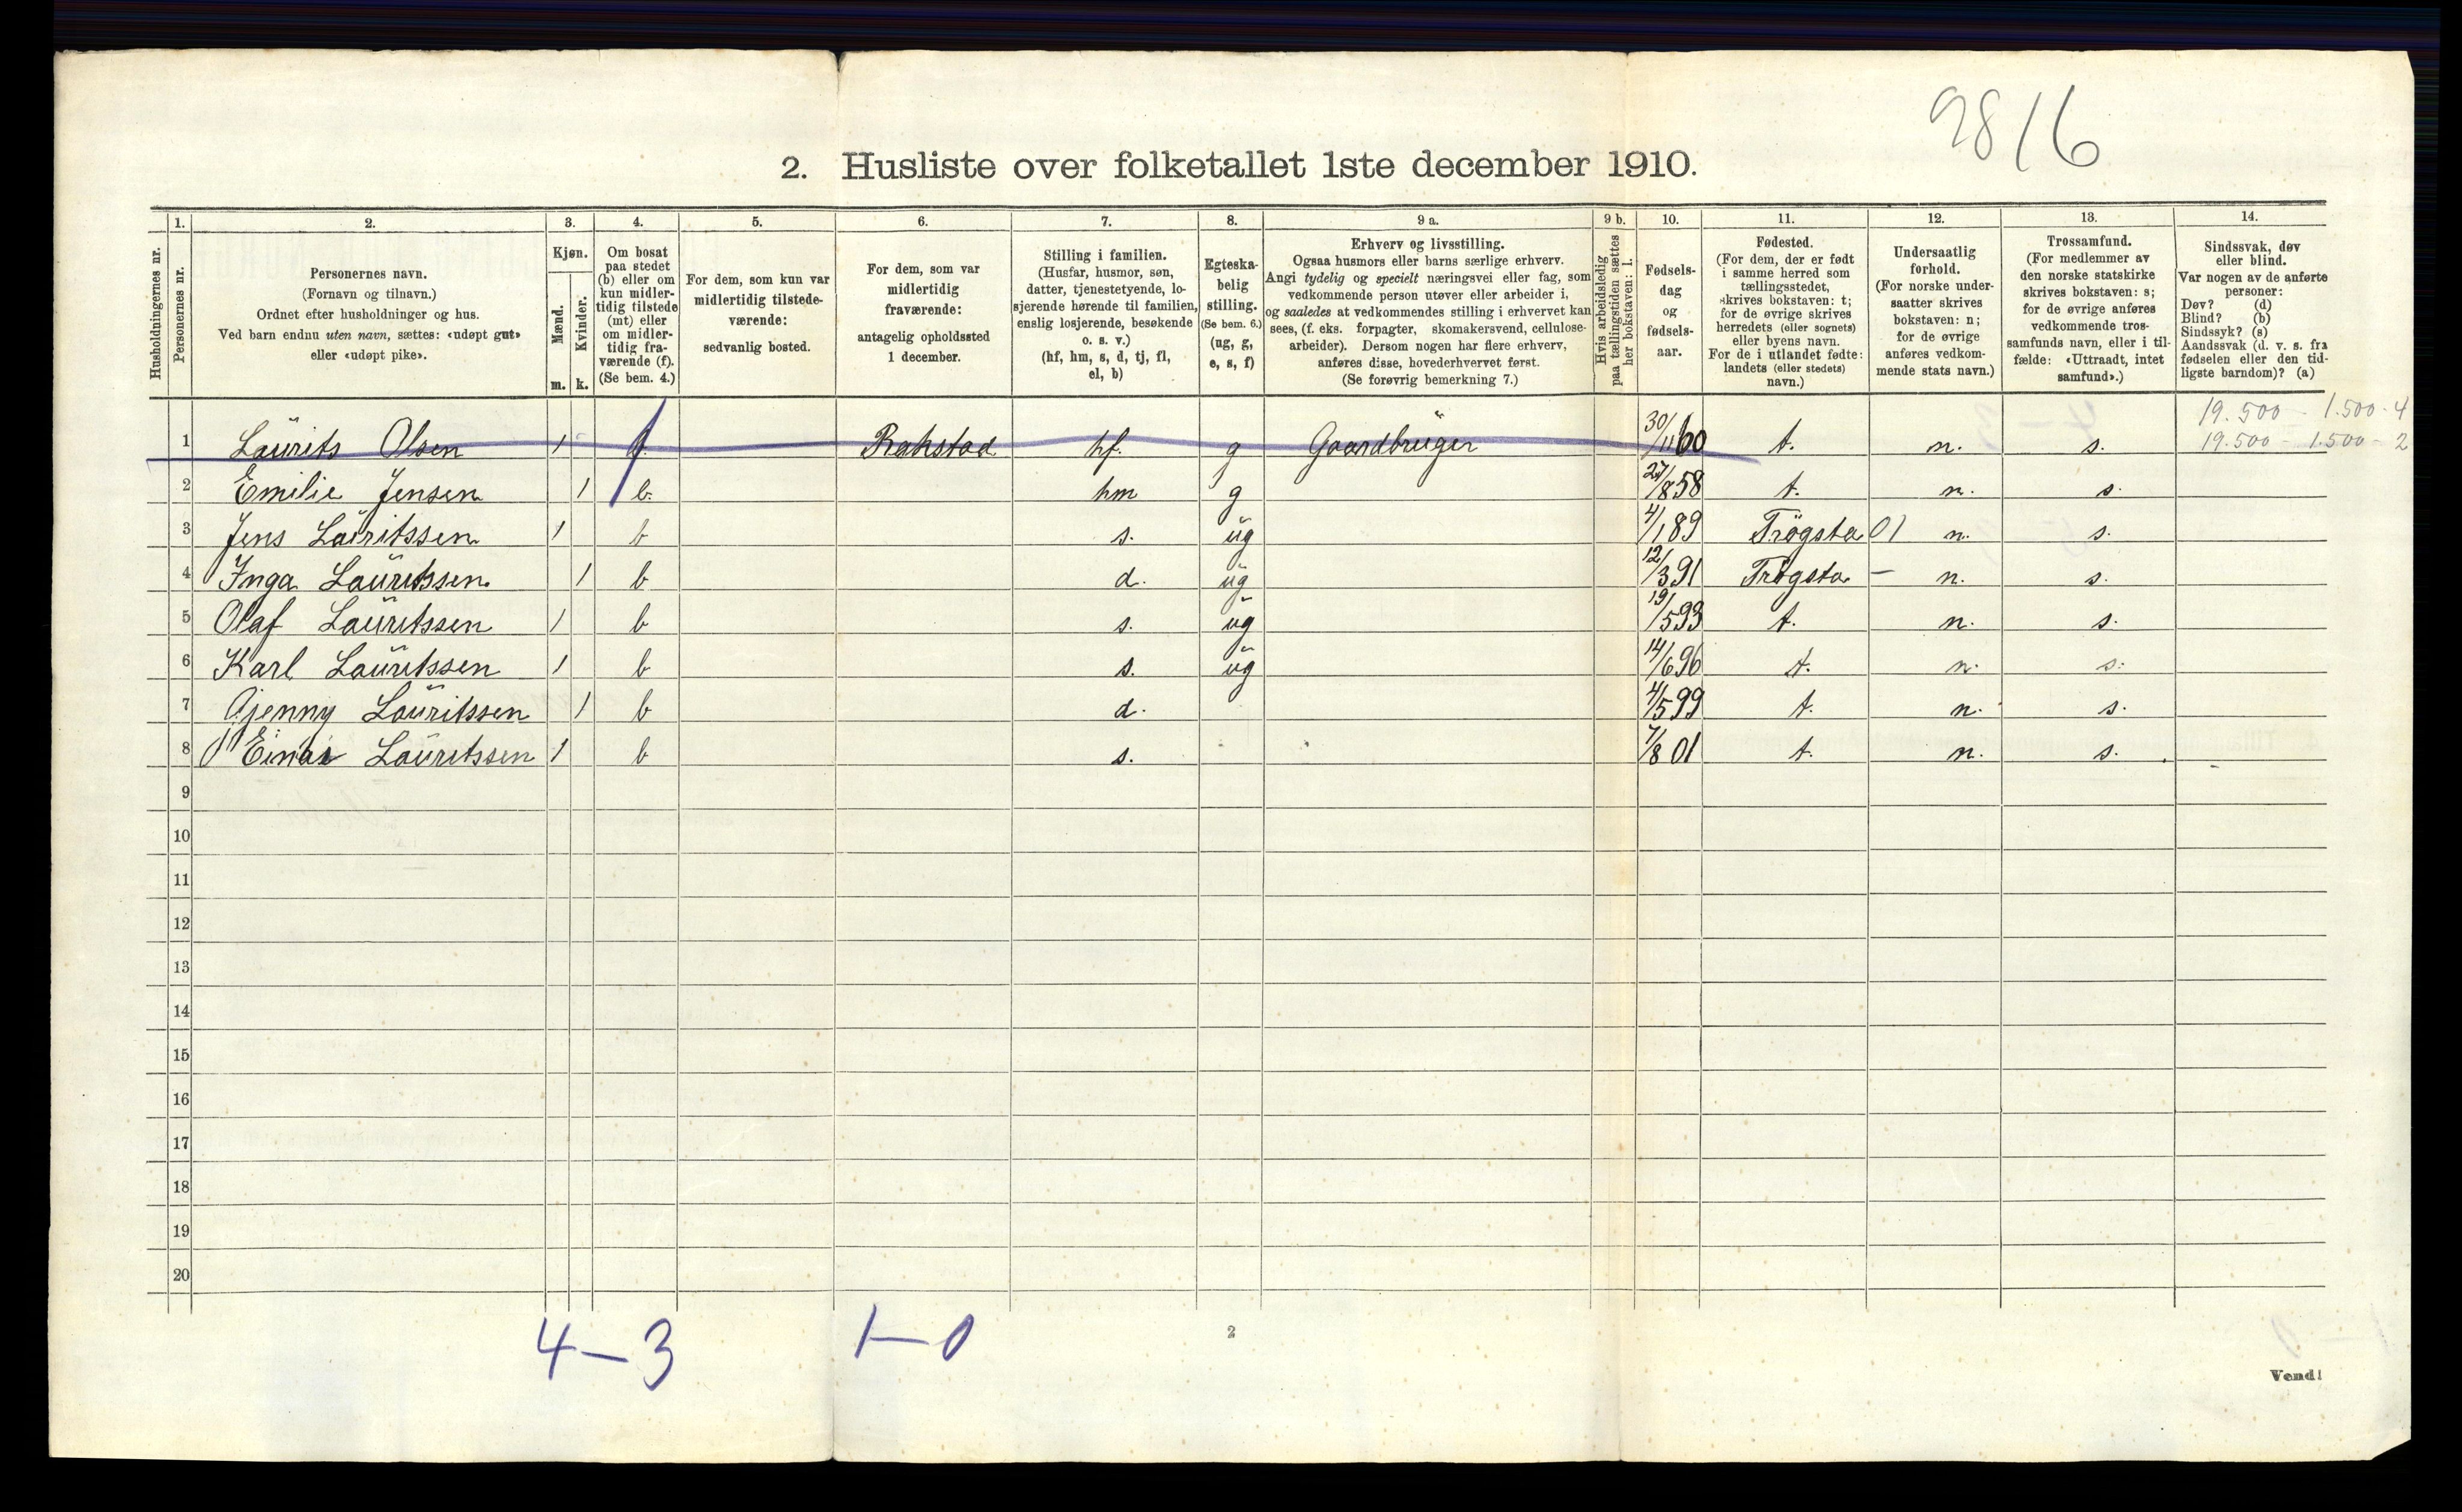 9816
2. Husliste over folketallet 1ste december 1910.
Husholdningernes nr.
1. Personernes nr.
2. Personernes navn.
(Fornavn og tilnavn.)
Ordnet efter husholdninger og hus.
Ved barn endnu uten navn, sættes: «udøpt gut»
eller «udøpt pike».
3. Kjøn.
Mænd. m.
Kvinder. k.
4. Om bosat
paa stedet
(b) eller om
kun midler-
tidig tilstede
(mt) eller
om midler-
tidig fra-
værende (f).
(Se bem. 4.)
5. For dem, som kun var
midlertidig tilstede-
værende:
sedvanlig bosted.
6. For dem, som var
midlertidig
fraværende:
antagelig opholdssted
1 december.
7. Stilling i familien.
(Husfar, husmor, søn,
datter, tjenestetyende, lo-
sjerende hørende til familien,
enslig losjerende, besøkende
o. s. v.)
(hf, hm, s, d, tj, fl,
el, b)
8. Egteska-
belig
stilling.
(Se bem. 6.)
(ug, g,
e, s, f)
9 a. Erhverv og livsstilling.
Ogsaa husmors eller barns særlige erhverv.
Angi tydelig og specielt næringsvei eller fag, som
vedkommende person utøver eller arbeider i,
og saaledes at vedkommendes stilling i erhvervet kan
sees, (f. eks. forpagter, skomakersvend, cellulose-
arbeider). Dersom nogen har flere erhverv,
anføres disse, hovederhvervet først.
(Se forøvrig bemerkning 7.)
9 b. Hvis arbeidsledig
paa tællingstiden sættes
her bokstaven: l.
10. Fødsels-
dag
og
fødsels-
aar.
11. Fødested.
(For dem, der er født
i samme herred som
tællingsstedet,
skrives bokstaven: t;
for de øvrige skrives
herredets (eller sognets)
eller byens navn.
For de i utlandet fødte:
landets (eller stedets)
navn.)
12. Undersaatlig
forhold.
(For norske under-
saatter skrives
bokstaven: n;
for de øvrige
anføres vedkom-
mende stats navn.)
13. Trossamfund.
(For medlemmer av
den norske statskirke
skrives bokstaven: s;
for de øvrige anføres
vedkommende tros-
samfunds navn, eller i til-
fælde: «Uttraadt, intet
samfund».)
14. Sindssvak, døv
eller blind.
Var nogen av de anførte
personer:
Døv? (d)
Blind? (b)
Sindssyk? (s)
Aandssvak (d. v. s. fra
fødselen eller den tid-
ligste barndom)? (a)
19.500 - 1.500-4
1 Laurits Olsen 1 f. Rakstad hf. g Gaardbruger 30/11 60 t. n. s. 19.500 - 1.500 - 2
2 Emilie Jensen 1 b. hm g 27/8 58 t. n. s.
3 Jens Lauritssen 1 b s. ug 4/1 89 Trögsta 01 n. s.
4 Inga Lauritssen. 1 b d. ug 12/3 91 Trögsta - n. s.
5 Olaf Lauritssen 1 b s. ug 19/5 93 t. n. s.
6 Karl Lauritssen 1 b s. ug 14/6 96 t. n. s.
7 Gjenny Lauritssen 1 b d. 4/5 99 t. n. s.
8 Einar Lauritssen 1 b s. 7/8 01 t. n. s.
9
10
11
12
13
14
15
16
17
18
19
20
4-3 1-0
2
Vend!